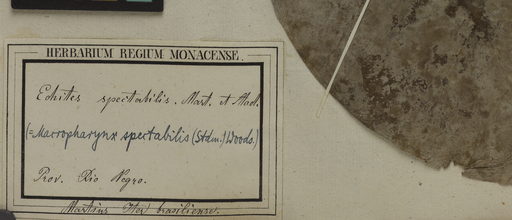 HERBARIUM REGIUM MONACENSE.
Echites spectabilis. Mart. et
(= Macropharynx spectabilis (Stdm.) Woods.)
Prov. Rio Negro.
Martius Iter brasiliense.